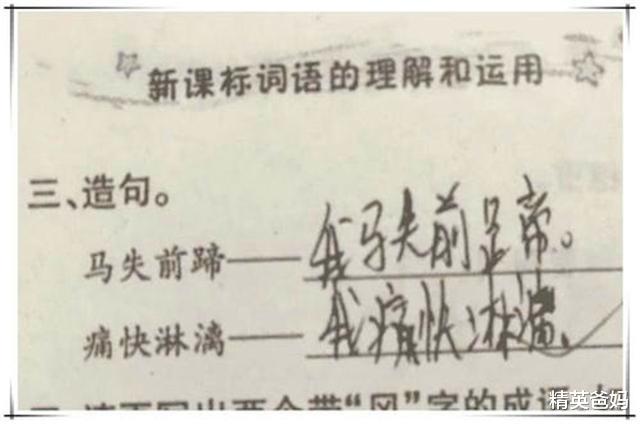 新课标词语的理解和运用
三、造句。
马失前蹄——我马失前足帝。
痛快淋漓——我痛快淋漓。
写出两个带“风”字的成语
精英爸妈